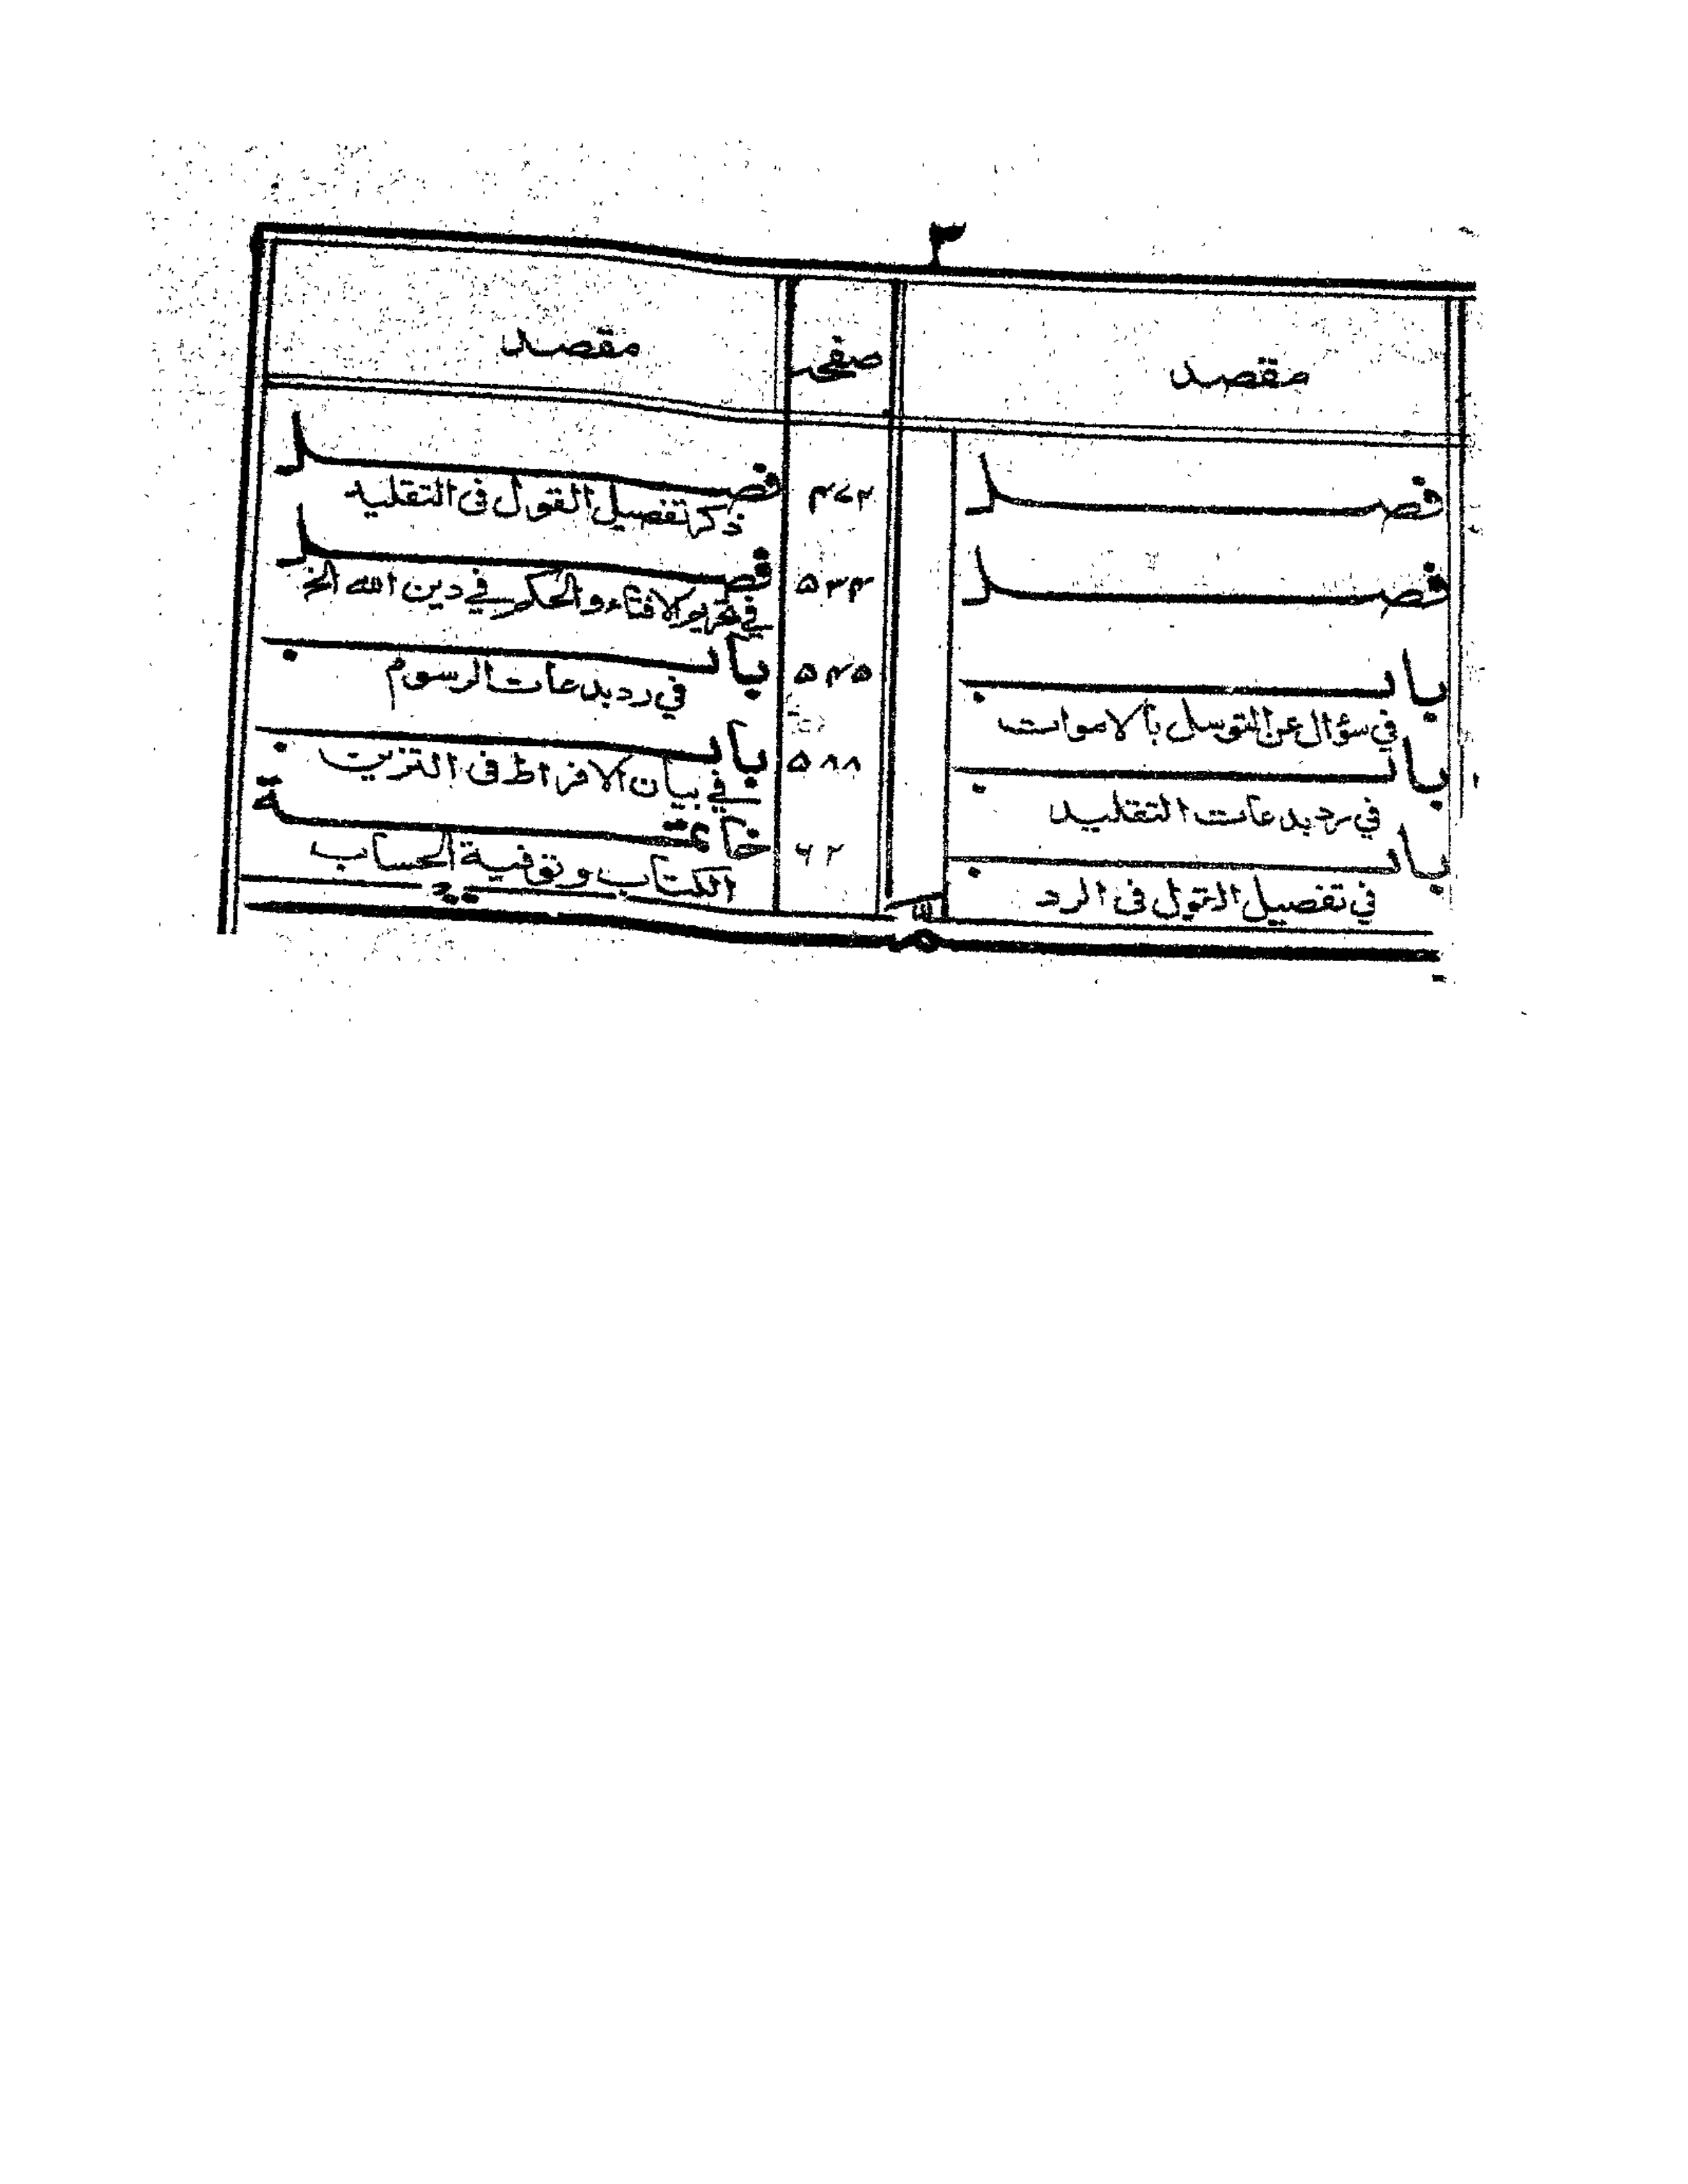 ٣
مقصد
فصل
فصل
باب
في سؤال عن التوسل بالاموات
باب
في رد بدعات التقليد
باب
في تفصيل القول فى الرد
صفحه
مقصد
۴۷۲
فصل
ذكر تفصيل القول فى التقليد
۵۳۴
فصل
في تحريم الافتاء والحكم في دين الله الخ
۵۴۵
باب
في رد بدعات الرسوم
۵۸۸
باب
في بيان الافراط فى التزين
۶۲
خاتمة
الكتاب وتوفية الحساب